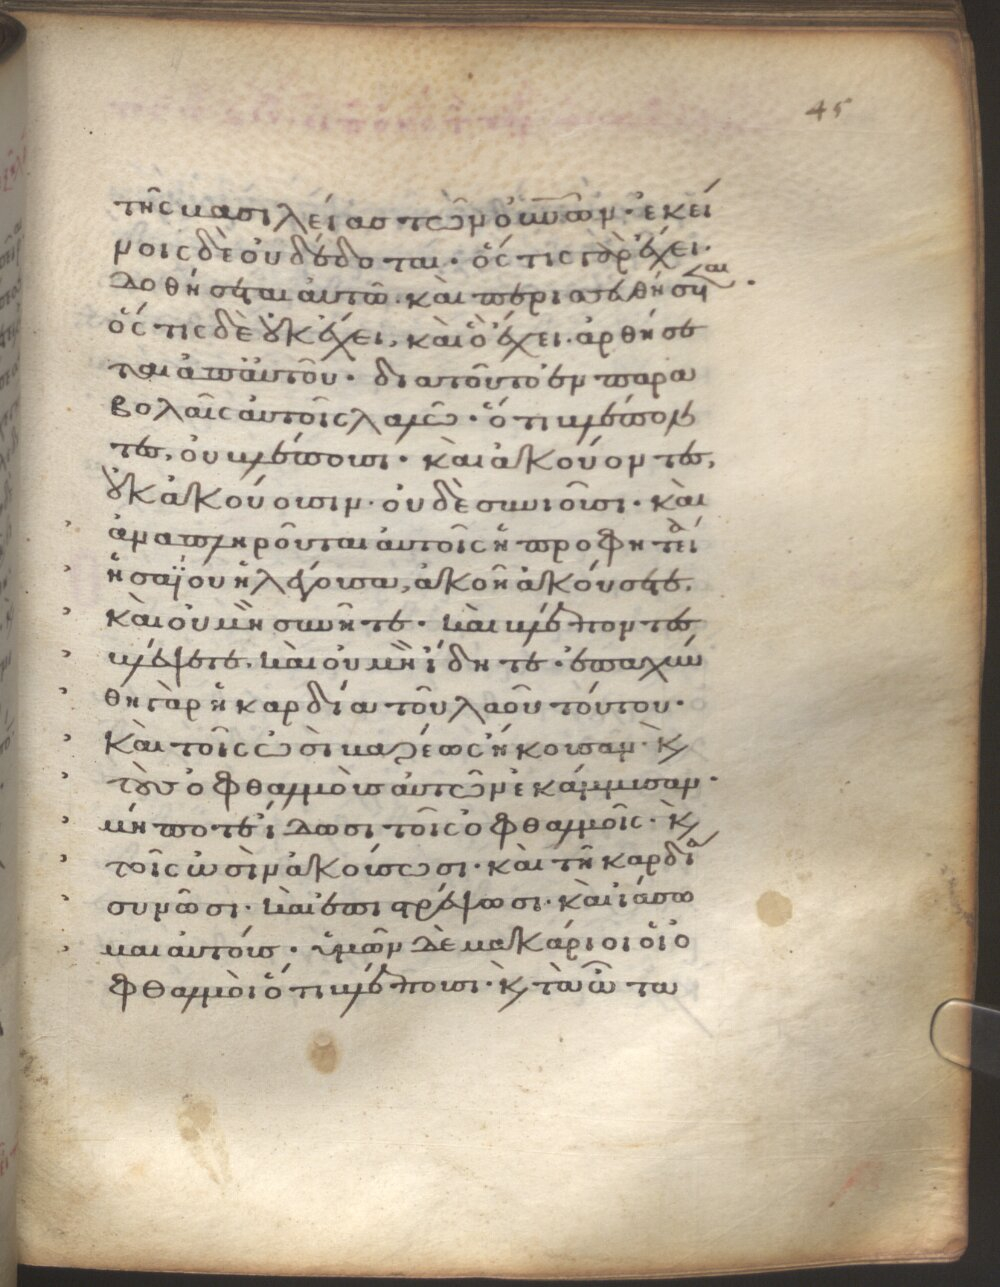 45
τῆς βασιλείας τῶν οὐνῶν· ἐκεί
νοις δὲ οὐ δέδοται· ὅς τις γὰρ ἔχει·
δοθήσεται αὐτῶ· καὶ περισσευθήσεται·
ὅς τις δὲ οὐκ ἔχει, καὶ ὃ ἔχει· ἀρθήσε
ται ἀπ' αὐτοῦ· διατοῦτο ἐν παρα
βολαῖς αὐτοῖς λαλῶ· ὅτι βλέπον
τες, οὐ βλέπουσι· καὶ ἀκούοντες,
οὐκ ἀκούουσιν· οὐδὲ συνιοῦσι· καὶ
ἀναπληροῦται αὐτοῖς ἡ προφητεία
ἡσαΐου ἡ λέγουσα, ἀκοῆ ἀκούσετε,
καὶ οὐ μὴ συνῆτε· καὶ βλέποντες
βλέψετε, καὶ οὐ μὴ ἴδητε· ἐπαχύν
θη γὰρ ἡ καρδία τοῦ λαοῦ τούτου·
καὶ τοῖς ὠσὶ βαρέως ἤκουσαν· κ̀
τοὺς ὀφθαλμοὺς αὐτῶν ἐκάμμυσαν·
μήποτε ἴδωσι τοῖς ὀφθαλμοῖς· κ̀
τοῖς ὠσὶν ἀκούσωσι· καὶ τῆ καρδία
συνῶσι· καὶ ἐπιστρέψωσι· καὶ ἰάσω
μαι αὐτούς· ὑμῶν δὲ μακάριοι οἱ ὀ
φθαλμοὶ ὅτι βλέπουσι· κ̀ τὰ ὦτα